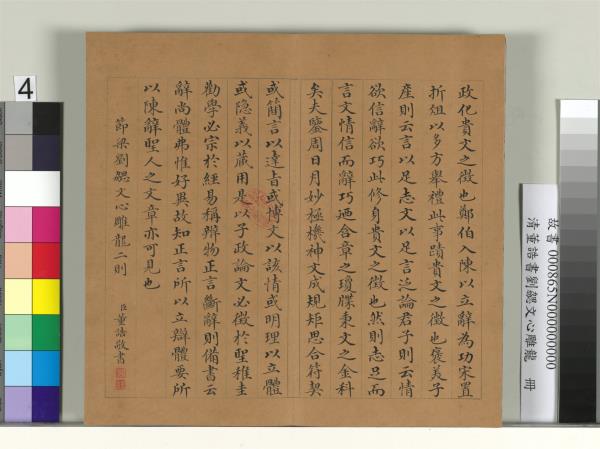 政化貴文之徵也鄭伯入陳以立辭為功宋置
折俎以多方舉禮此事蹟貴文之徵也褒美子
產則云言以足志文以足言泛論君子則云情
欲信辭欲巧此修身貴文之徵也然則志足而
言文情信而辭巧迺含章之瓊牒秉文之金科
矣夫鑒周日月妙極機神文成規矩思合符契
或簡言以達旨或博文以該情或明理以立體
或隱義以藏用是以子政論文必徵於聖稚圭
勸學必宗於經易稱辨物正言斷辭則備書云
辭尚體弗惟好異故知正言所以立辯體要所
以陳辭聖人之文章亦可見也
節梁劉勰文心雕龍二則
臣董誥敬書
故書000865N000000000
清董誥書劉勰文心雕龍 冊
4